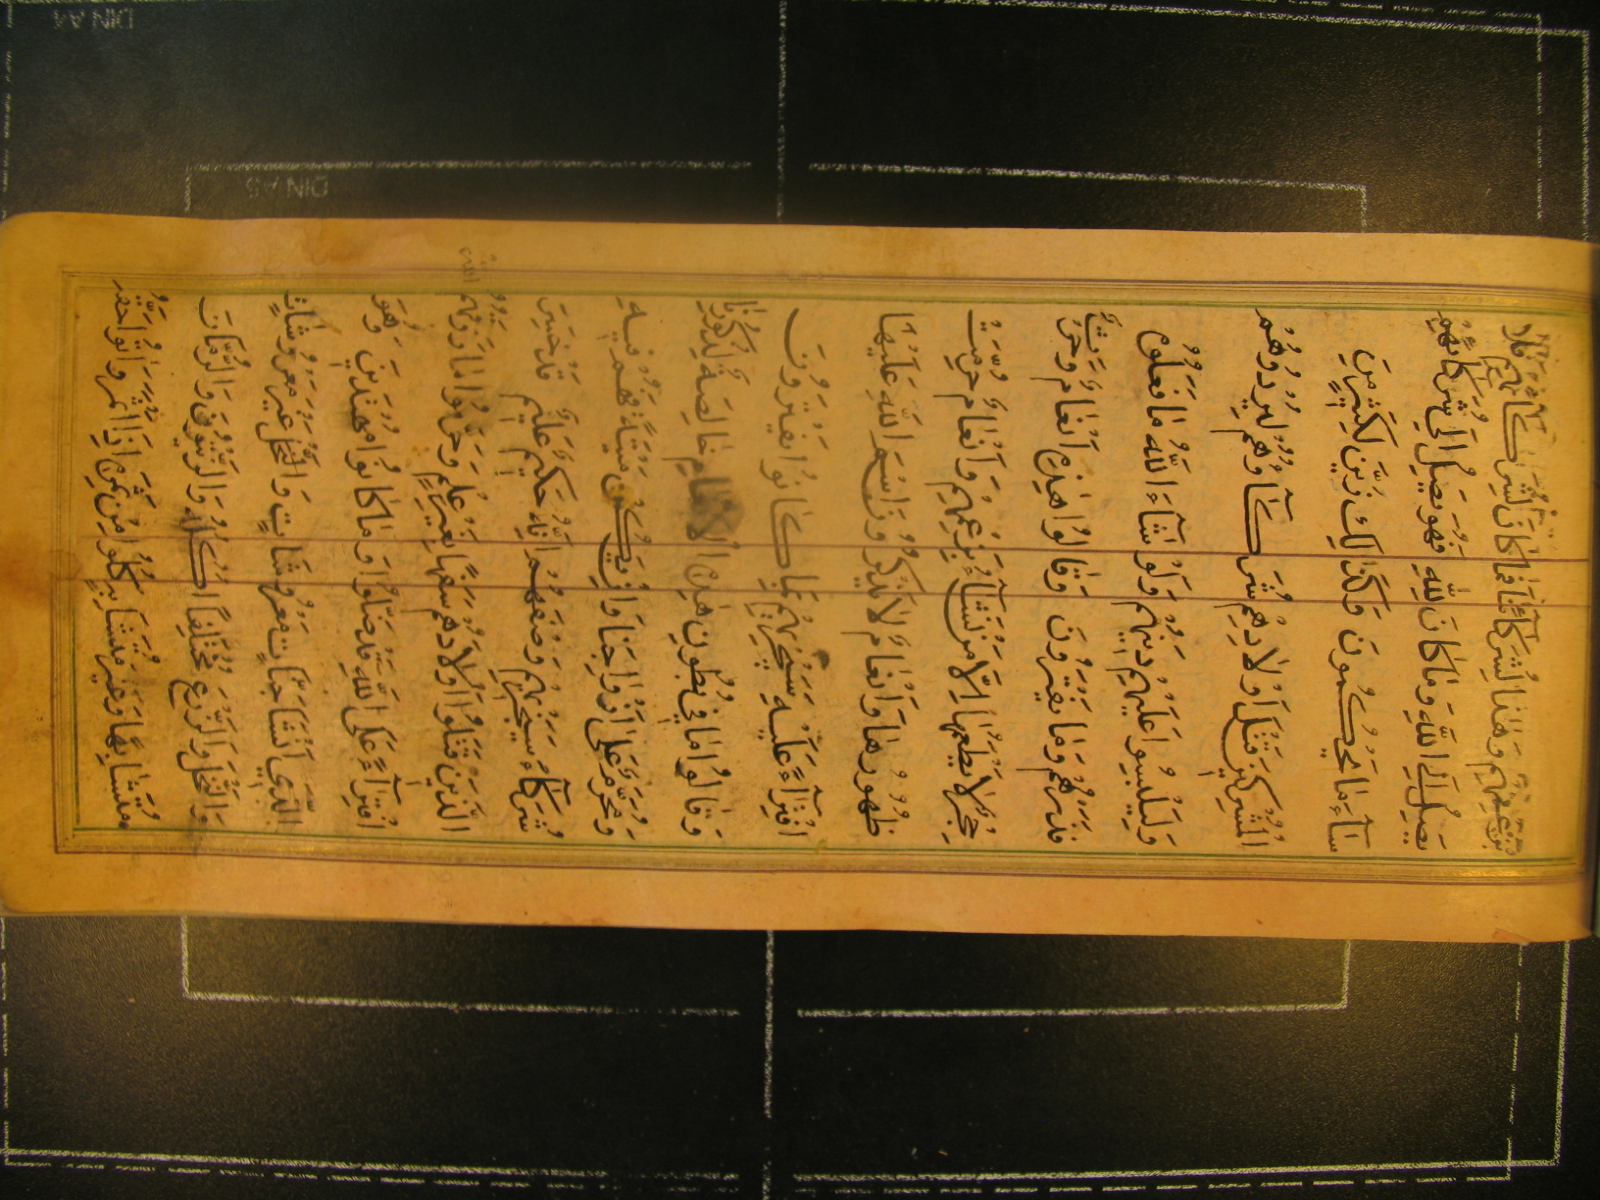 بِزَعْمِهِمْ وَهٰذَا لِشُرَكَآئِنَا فَمَا كَانَ لِشُرَكَآئِهِمْ فَلَا
يَصِلُ اِلَى اللّٰهِ وَمَا كَانَ لِلّٰهِ فَهُوَ يَصِلُ اِلٰى شُرَكَآئِهِمْ
سَآءَ مَا يَحْكُمُونَ وَكَذٰلِكَ زَيَّنَ لِكَثِيرٍ مِنَ
الْمُشْرِكِينَ قَتْلَ اَوْلَادِهِمْ شُرَكَآؤُهُمْ لِيُرْدُوهُمْ
وَلِيَلْبِسُوا عَلَيْهِمْ دِينَهُمْ وَلَوْ شَآءَ اللّٰهُ مَا فَعَلُوهُ
فَذَرْهُمْ وَمَا يَفْتَرُونَ وَقَالُوا هٰذِهِ اَنْعَامٌ وَحَرْثٌ
حِجْرٌ لَا يَطْعَمُهَا اِلَّا مَنْ نَشَآءُ بِزَعْمِهِمْ وَاَنْعَامٌ حُرِّمَتْ
ظُهُورُهَا وَاَنْعَامٌ لَا يَذْكُرُونَ اسْمَ اللّٰهِ عَلَيْهَا
افْتِرَآءً عَلَيْهِ سَيَجْزِيهِمْ بِمَا كَانُوا يَفْتَرُونَ
وَقَالُوا مَا فِي بُطُونِ هٰذِهِ الْاَنْعَامِ خَالِصَةٌ لِذُكُورِنَا
وَمُحَرَّمٌ عَلٰى اَزْوَاجِنَا وَاِنْ يَكُنْ مَيْتَةً فَهُمْ فِيهِ
شُرَكَآءُ سَيَجْزِيهِمْ وَصْفَهُمْ اِنَّهُ حَكِيمٌ عَلِيمٌ قَدْ خَسِرَ
الَّذِينَ قَتَلُوا اَوْلَادَهُمْ سَفَهًا بِغَيْرِ عِلْمٍ وَحَرَّمُوا مَا رَزَقَهُمُ اللّٰهُ
افْتِرَآءً عَلَى اللّٰهِ قَدْ ضَلُّوا وَمَا كَانُوا مُهْتَدِينَ وَهُوَ
الَّذِي اَنْشَاَ جَنَّاتٍ مَعْرُوشَاتٍ وَالنَّخْلَ غَيْرَ مَعْرُوشَاتٍ
وَالنَّخْلَ وَالزَّرْعَ مُخْتَلِفًا اُكُلُهُ وَالزَّيْتُونَ وَالرُّمَّانَ
مُتَشَابِهًا وَغَيْرَ مُتَشَابِهٍ كُلُوا مِنْ ثَمَرِهِ اِذَا اَثْمَرَ وَاٰتُوا حَقَّهُ